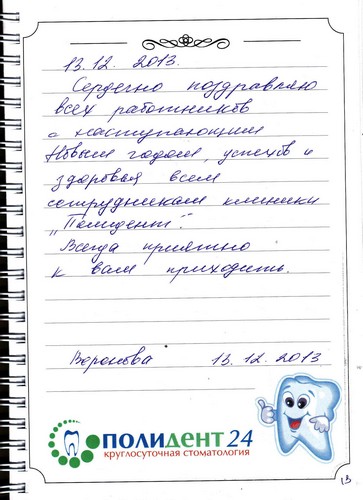 13.12. 2013.
Сердечно поздравляю
всех работников
с наступающим
Новым годом, успехов и
здоровья всем
сотрудникам клиники
„Полидент".
Всегда приятно
к вам приходить.
Воронова 13.12.2013
ПОЛИДЕНТ 24
круглосуточная стоматология
13